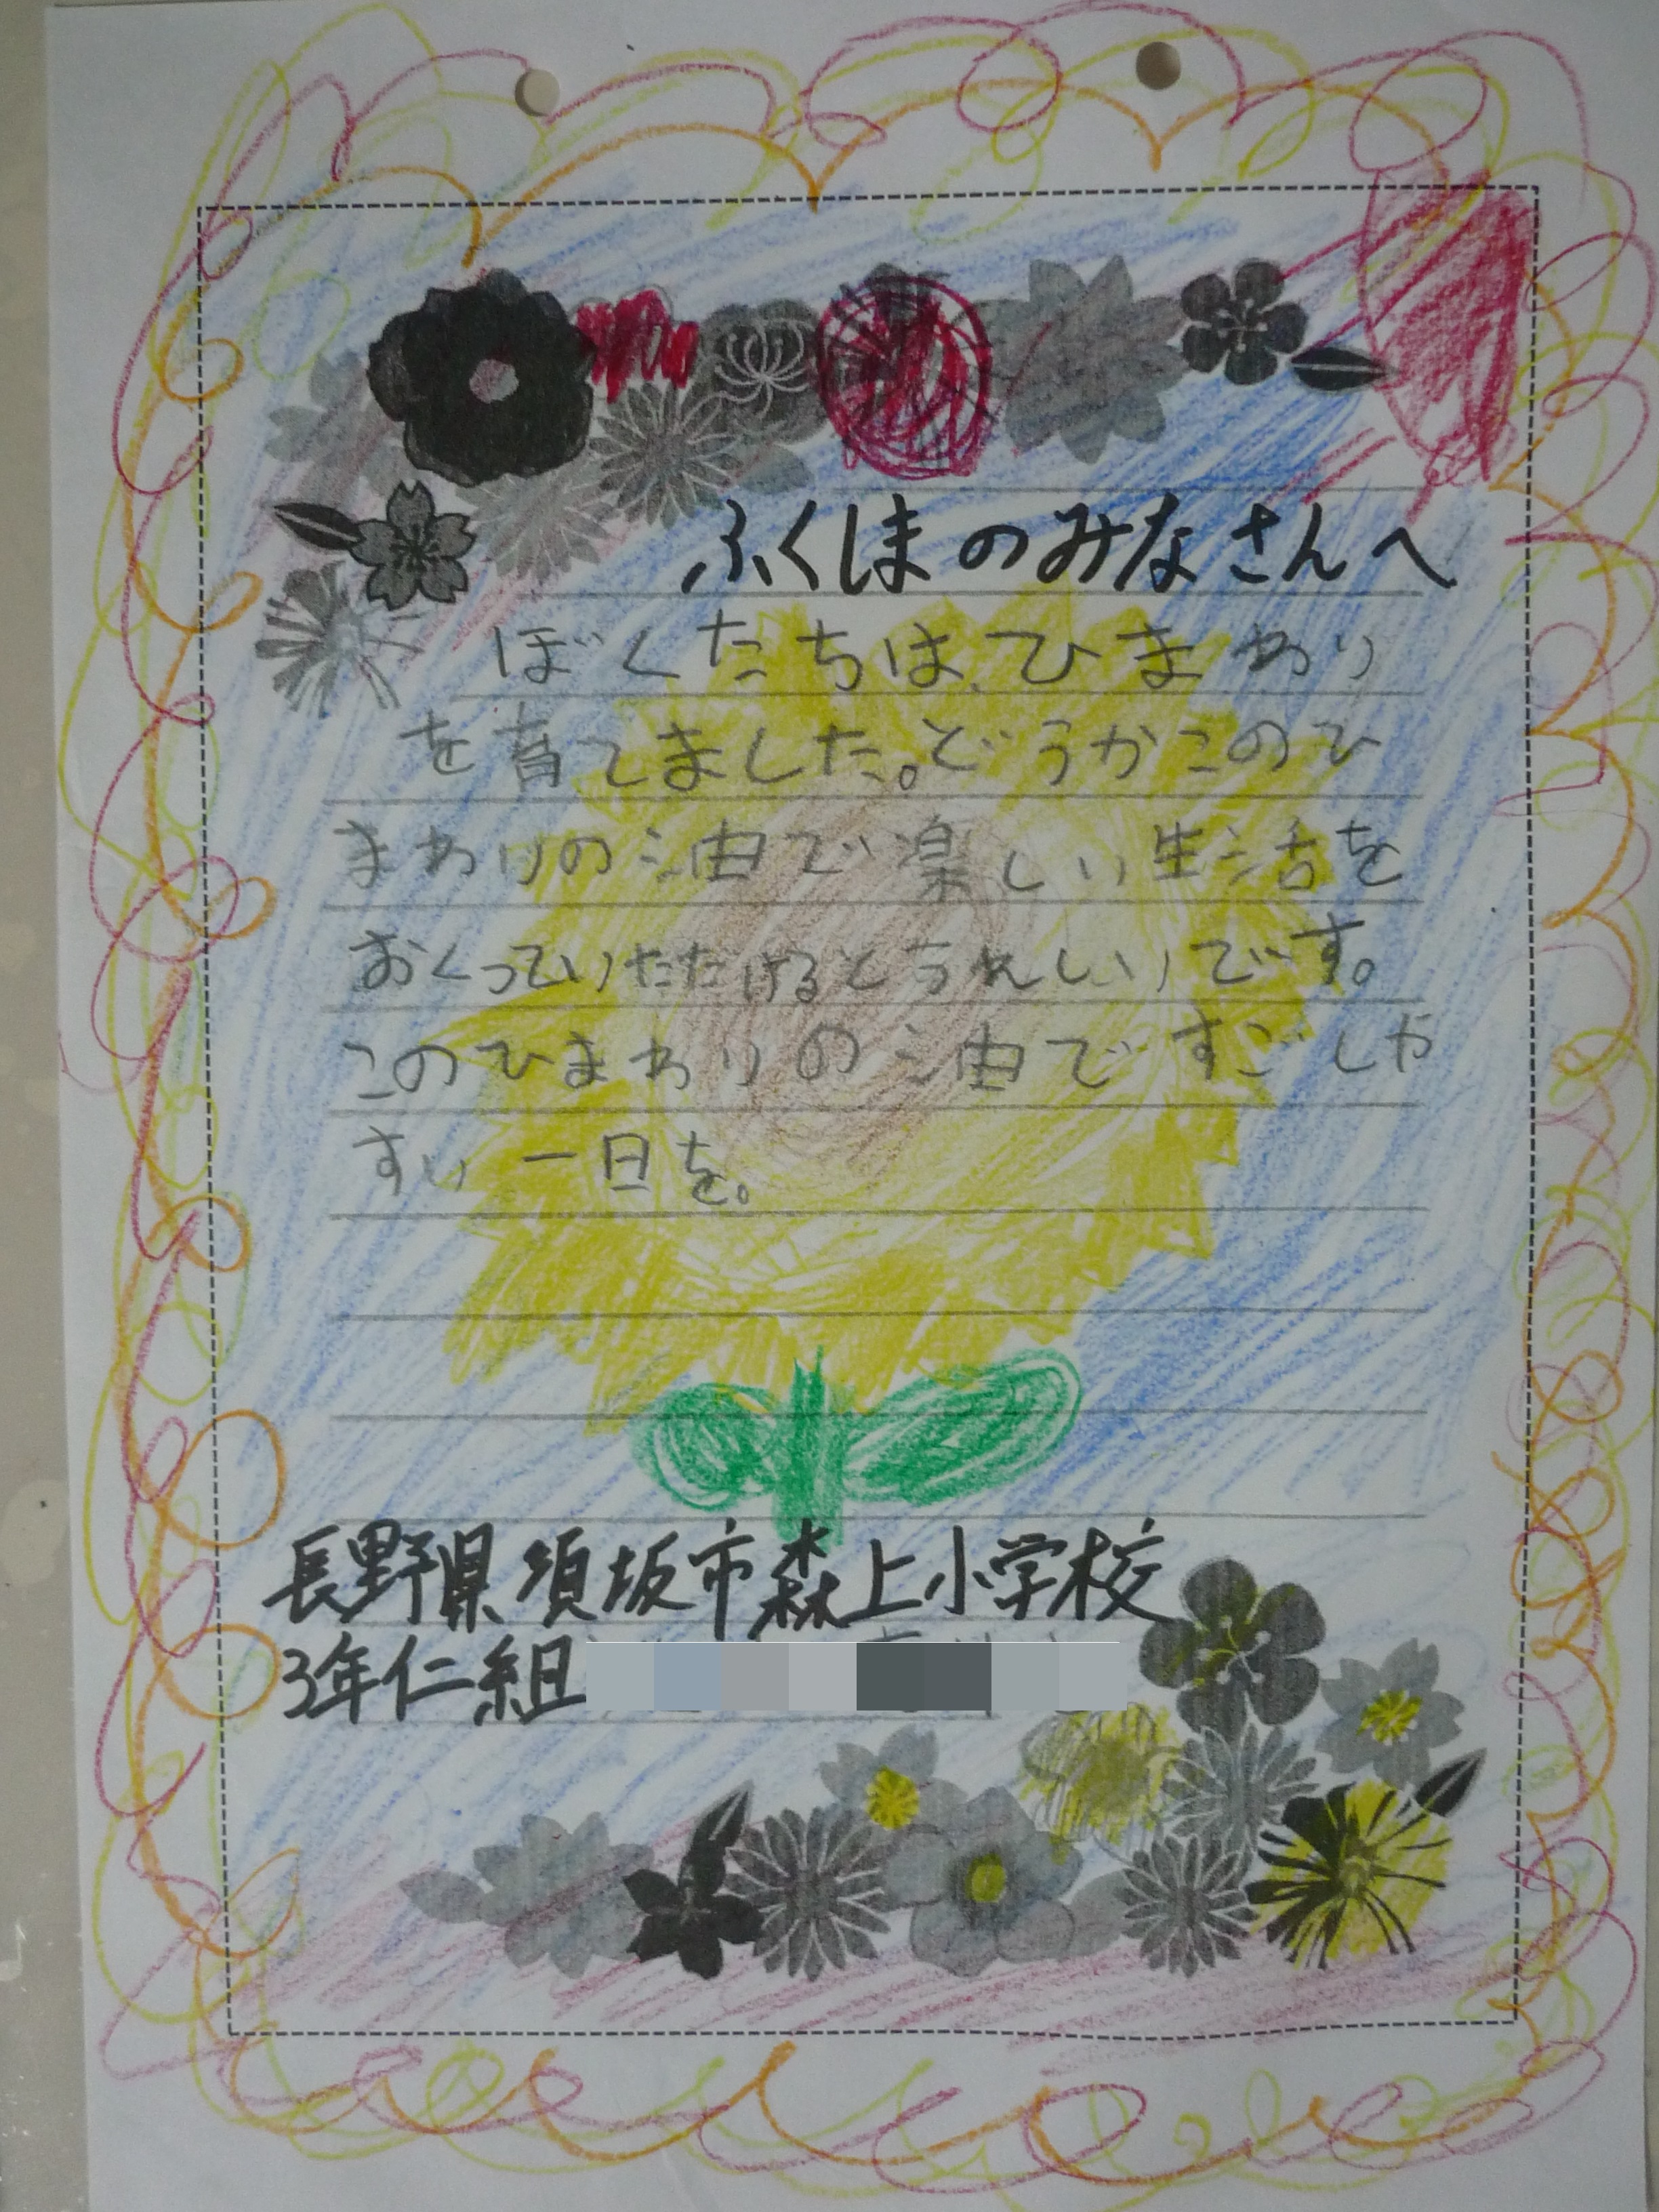 ふくしまのみなさんへ
ぼくたちは、ひまわり
を育てました。どうかこのひ
まわりの油で楽しい生活を
おくっていただけるとうれしいです。
このひまわりの油ですごしや
すい一日を。
長野県須坂市森上小学校
3年仁組